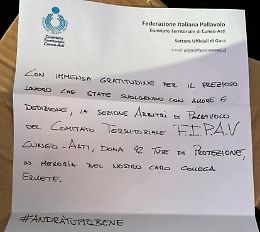 Federazione Italiana Pallavolo
Comitato Territoriale di Cuneo-Asti
Settore Ufficiali di Gara
Comitato
Territoriale
Cuneo-Asti
CON IMMENSA GRATITUDINE PER IL PREZIOSO
LAVORO CHE STATE SVOLGENDO CON AMORE E
DEDIZIONE, LA SEZIONE ARBITRI DI PALLAVOLO
DEL COMITATO TERRITORIALE F.I.P.A.V
CUNEO-ASTI, DONA 92 TUTE DI PROTEZIONE,
IN MEMORIA DEL NOSTRO CARO COLLEGA
ERMETE.
#ANDRÀTUTTOBENE